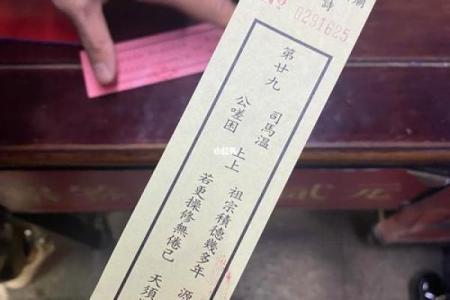 廟
詩
No 0291625
第廿九
司馬溫
公嗟困
上上
祖宗積德幾多年 源
若更操修無倦已 天須
小红书